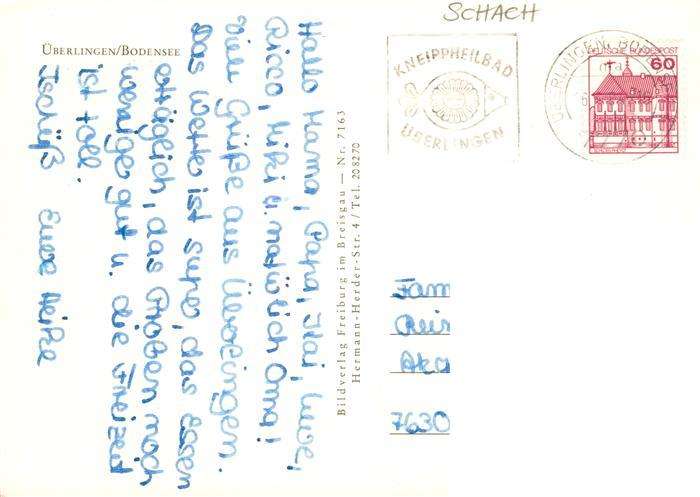 SCHACH
ÜBERLINGEN/BODENSEE
Hallo Mama, Papa, Kai, Uwe,
Ricco, Kiki u. natürlich Oma!
viele Grüße aus Überlingen.
Das Wetter ist super, das Essen
erträglich, das Proben noch
weniger gut u. die Freizeit
ist toll.
Tschüß Eure Heike
Bildverlag Freiburg im Breisgau — Nr. 7163
Hermann-Herder-Str. 4 / Tel. 208270
KNEIPPHEILBAD
ÜBERLINGEN
ÜBERLINGEN, BO
DEUTSCHE BUNDESPOST
60
Fam
Rei
Aka
7630